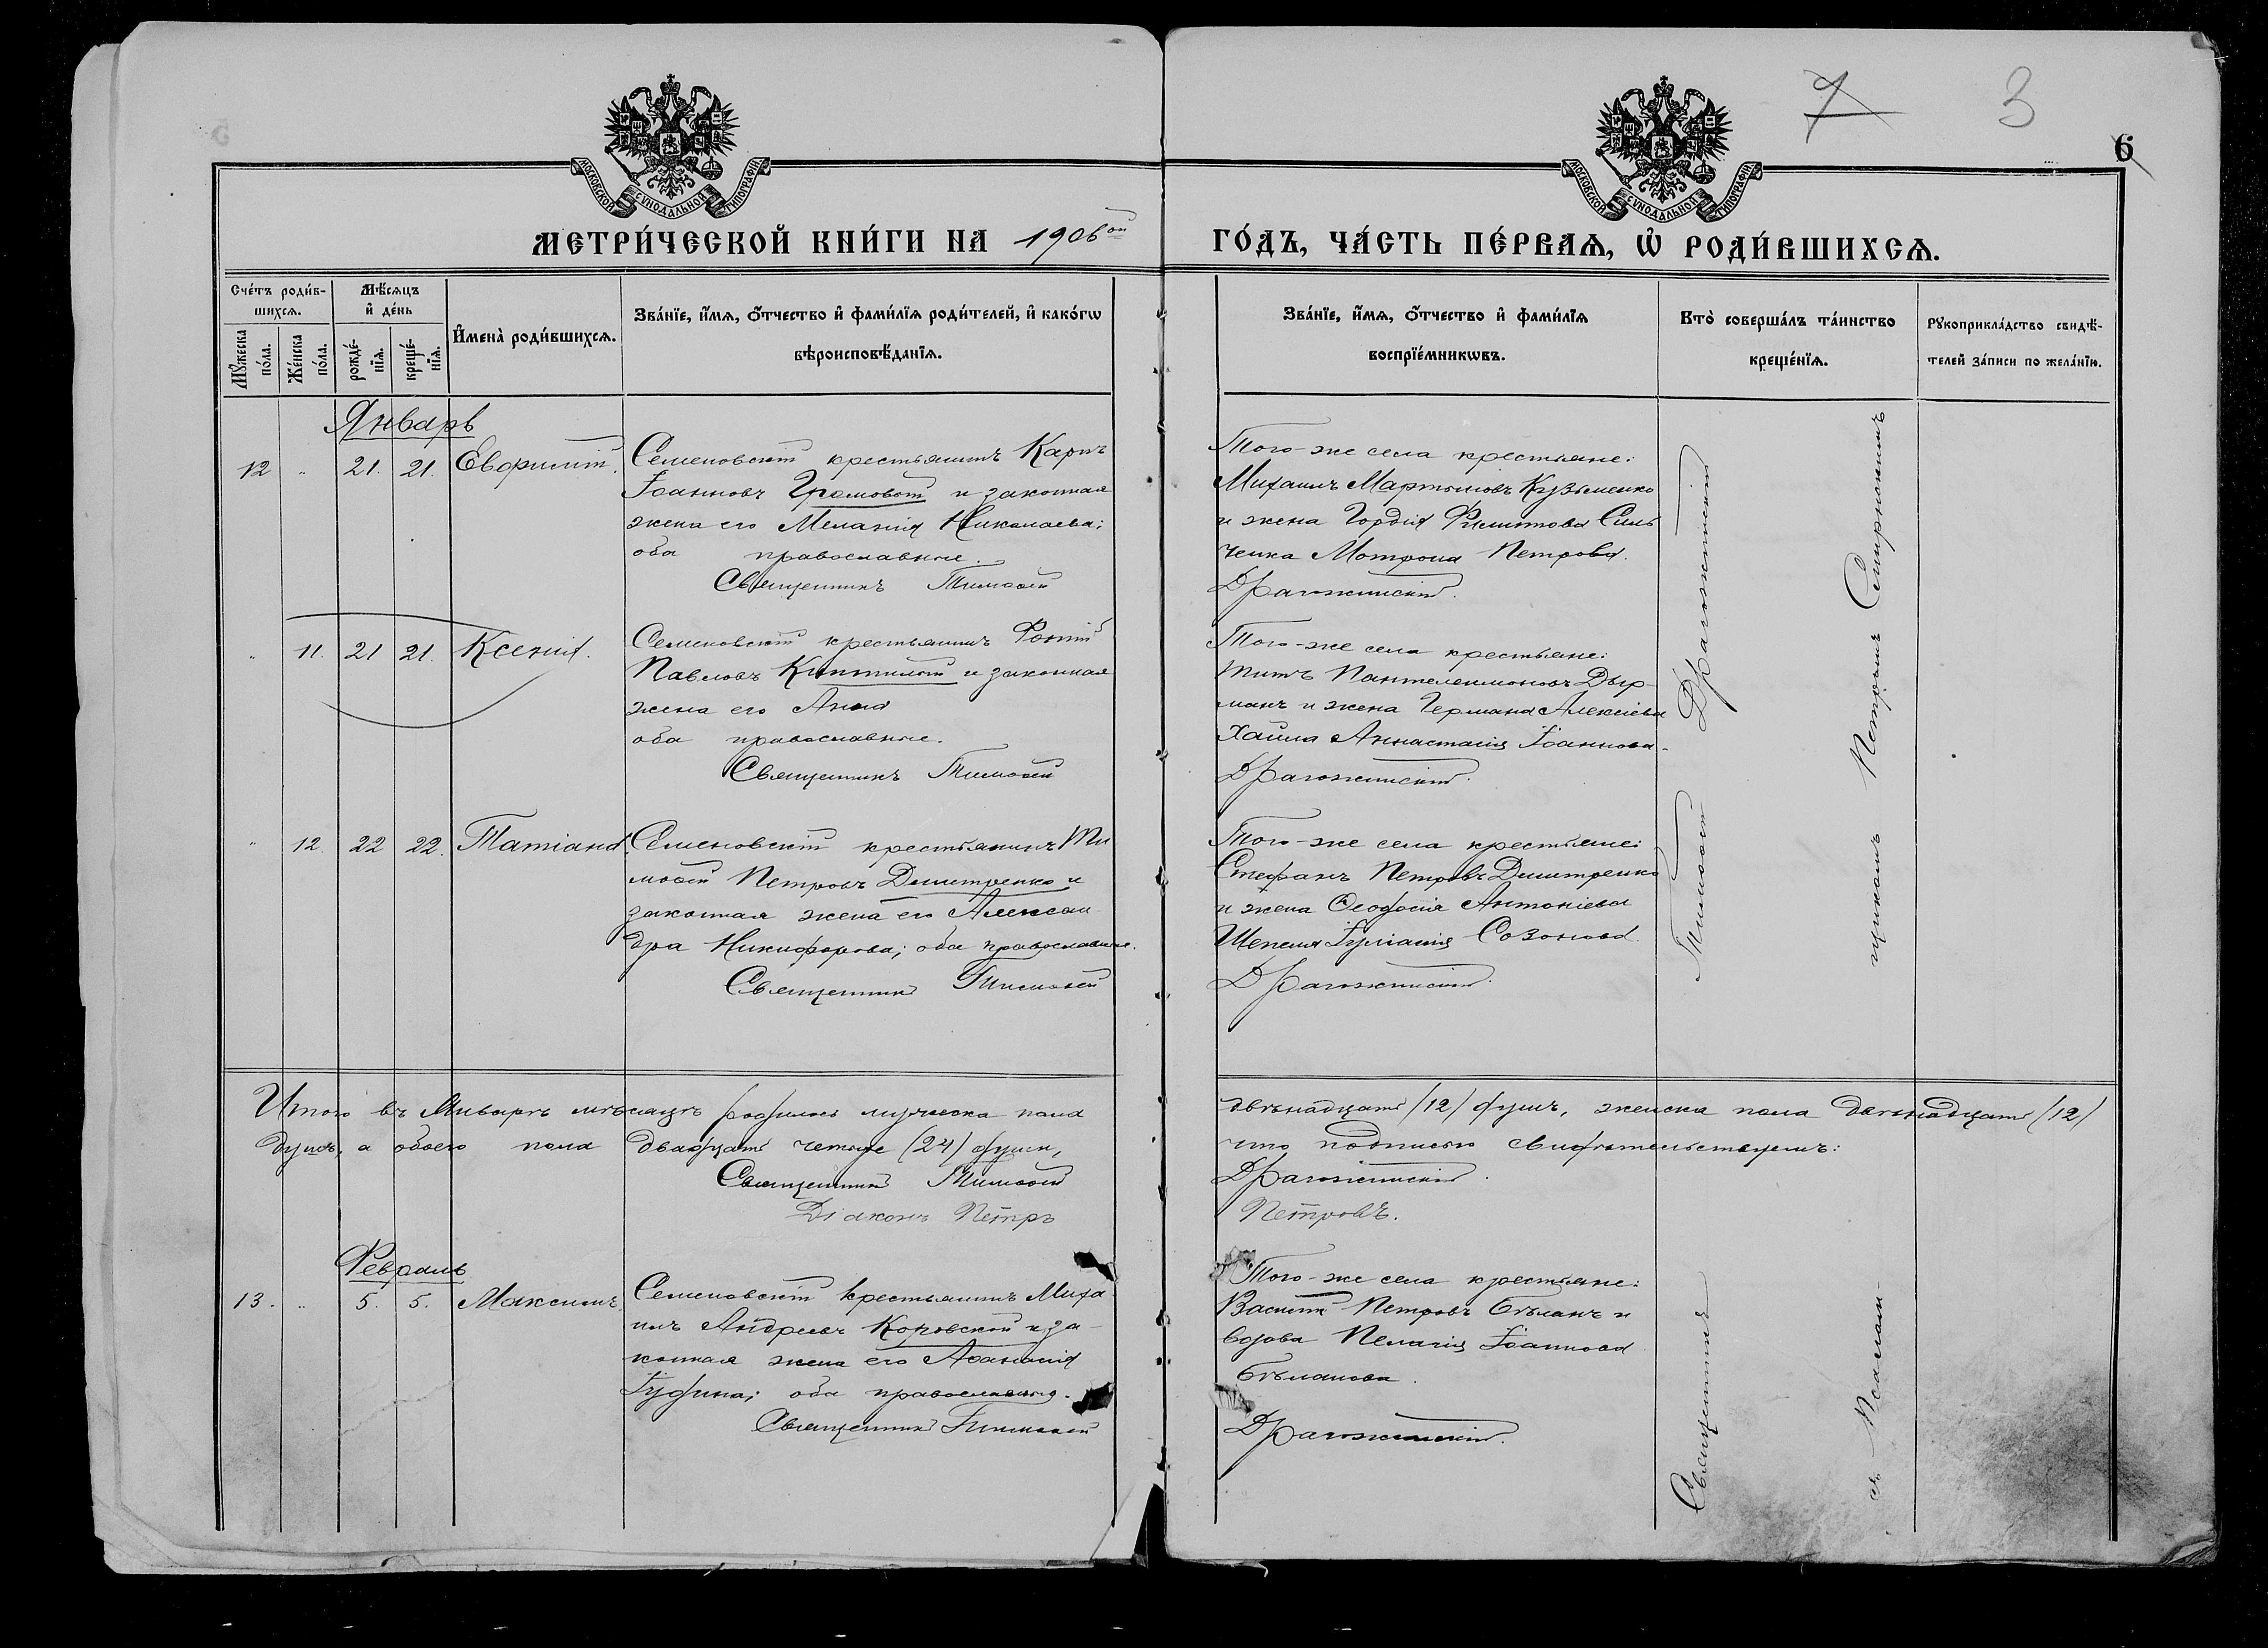 7 3
6
МОСКОВСКОЙ СѴНОДАЛЬНОЙ ТИПОГРАФІИ
МОСКОВСКОЙ СѴНОДАЛЬНОЙ ТИПОГРАФІИ
МЕТРИ́ЧЕСКОЙ КНИ́ГИ НА 1906ой ГО́ДЪ, ЧА́СТЬ ПЕ́РВАѦ, Ѡ҆ РОДИ́ВШИХСѦ.
Сче́тъ роди́в-
шихсѧ.
Мꙋжеска по́ла.
Же́нска по́ла.
Мѣ́сѧцъ
и҆ де́нь
рожде́-
нїѧ.
креще́-
нїѧ.
И҆мена̀ роди́вшихсѧ.
Зва́нїе, и҆́мѧ, ѻ҆́тчество и҆ фами́лїѧ роди́телей, и҆ како́гѡ
вѣроисповѣ́данїѧ.
Зва́нїе, и҆́мѧ, ѻ҆́тчество и҆ фами́лїѧ
воспрїе́мникѡвъ.
Кто̀ соверша́лъ та́инство
креще́нїѧ.
Рꙋкоприкла́дство свидѣ́-
телей за́писи по жела́нїю.
Январь
12 " 21. 21. Евфимій.
Семеновскій крестьянинъ Карпъ
Іоанновъ Громовой и законная
жена его Меланія Николаева;
оба православные.
Священникъ Тимоѳей
Того-же села крестьяне:
Михаилъ Мартыновъ Кузьменко
и жена Гордія Филиппова Силь
ченка Мотрона Петрова.
Драгожинскій.
" 11. 21 21. Ксенія.
Семеновскій крестьянинъ Фотій
Павловъ и законная
жена его Анна
оба православные.
Священникъ Тимоѳей
Того-же села крестьяне:
Титъ Пантелеимоновъ Дыр-
манъ и жена Германа Алексіева
Хайла Аннастасія Іоаннова.
Драгожинскій.
" 12. 22 22. Татіана.
Семеновскій крестьянинъ Ти
моѳей Петровъ Димитренко и
законная жена его Алексан
дра Никифорова; оба православные.
Священникъ Тимоѳей
Того-же села крестьяне:
Стефанъ Петровъ Димитренко
и жена Ѳеодосія Антоніева
Шепеля Іуліанія Созонова.
Драгожинскій.
Итого въ Январѣ мѣсяцѣ родилось мужеска пола двѣнадцать /12/ душъ, женска пола двѣнадцать /12/
душъ, а обоего пола двадцать четыре (24) души, что подписью свидѣтельствуемъ:
Священникъ Тимоѳей Драгожинскій.
Діаконъ Петръ Петровъ.
Февраль
13. " 5. 5. Максимъ.
Семеновскій крестьянинъ Миха
илъ Андреевъ Коровской и за-
конная жена его Аѳанасія
Іудина; оба православные.
Священникъ Тимоѳей
Того-же села крестьяне:
Василій Петровъ Бѣланъ и
вдова Пелагія Іоаннова
Бѣланова.
Драгожинскій.
Священникъ Тимоѳей Драгожинскій
съ Псалом-
щикомъ Петромъ Смирновымъ